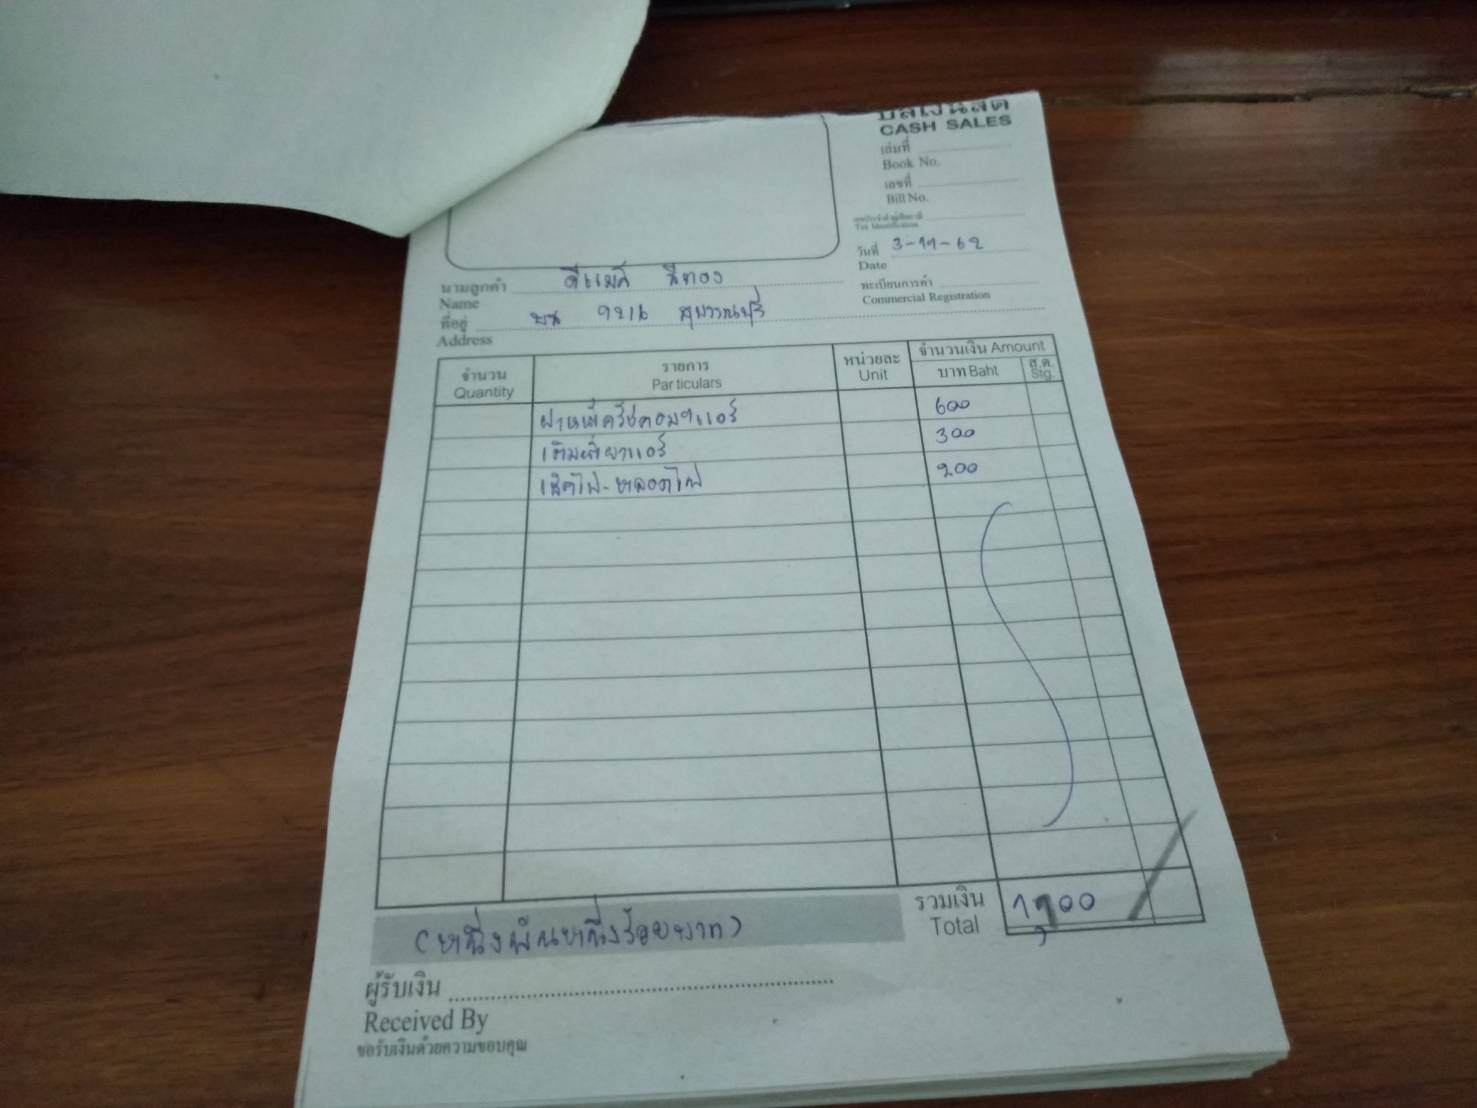 บิลเงินสด
CASH SALES
เล่มที่
Book No.
เลขที่
Bill No.
เลขประจำตัวผู้เสียภาษี
Tax Identification
วันที่ 3-11-62
Date
นามลูกค้า ดีแมค สีทอง
Name
ทะเบียนการค้า
Commercial Registration
ที่อยู่ สุพรรณบุรี
Address
จำนวน รายการ หน่วยละ จำนวนเงิน Amount
Quantity Particulars Unit บาท Baht ส.ต. Stg.
600
300
เช็คไฟ-หลอดไฟ 200
รวมเงิน 1,100
Total
(หนึ่งพันหนึ่งร้อยบาท)
ผู้รับเงิน
Received By
ขอรับเงินด้วยความขอบคุณ